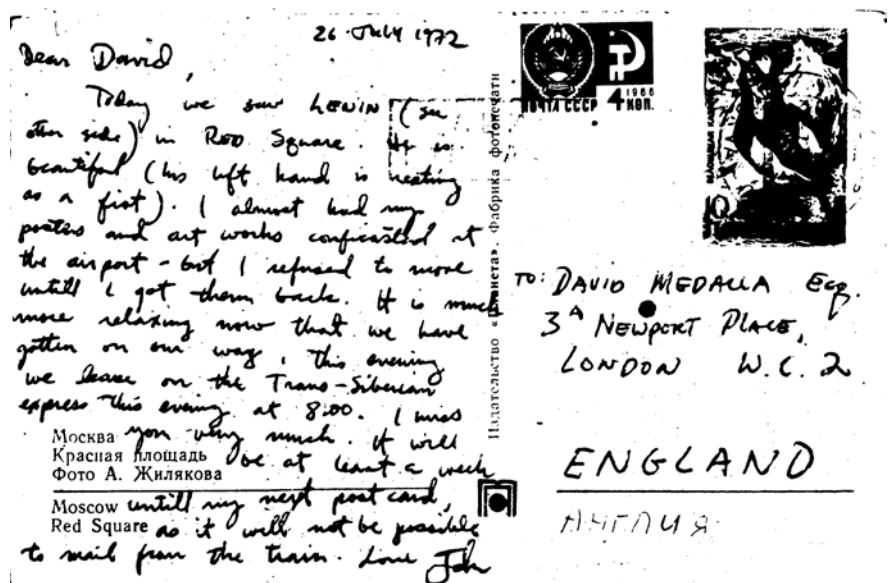 26 July 1972
Dear David,
Today we saw LENIN (see
other side) in RED Square. He is
beautiful (his left hand is resting
as a fist). I almost had my
posters and art works conficasted at
the airport - but I refused to move
untill I got them back. It is much
more relaxing now that we have
gotten on our way, this evening
we leave on the Trans-Siberian
express this evening at 8:00. I miss
you very much. It will
be at least a week
untill my next post card,
as it will not be possible
to mail from the train. Love John
Москва
Красная площадь
Фото А. Жилякова
Moscow
Red Square
Издательство «Планета». Фабрика фотопечати
ПОЧТА СССР 4 КОП.
1966
10
TO: DAVID MEDALLA Esq.
3A NEWPORT PLACE,
LONDON W.C. 2
ENGLAND
АНГЛИЯ